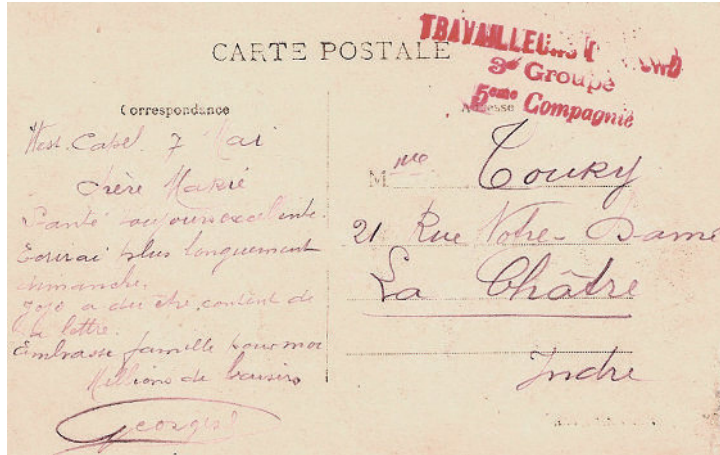 CARTE POSTALE
TRAVAILLEURS
3e Groupe
5eme Compagnie
Correspondance
Adresse
West-Capel. 7 Mai
Chère Marie
Santé toujours excellente.
Ecrirai plus longuement
dimanche.
Jojo a du être content de
sa lettre.
Embrasse famille pour moi
Millions de baisers
Georges
Mme Toury
21 Rue Notre-Dame
La Châtre
Indre